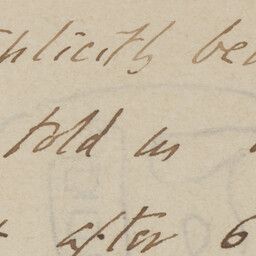 plicitly be
told us
after 6